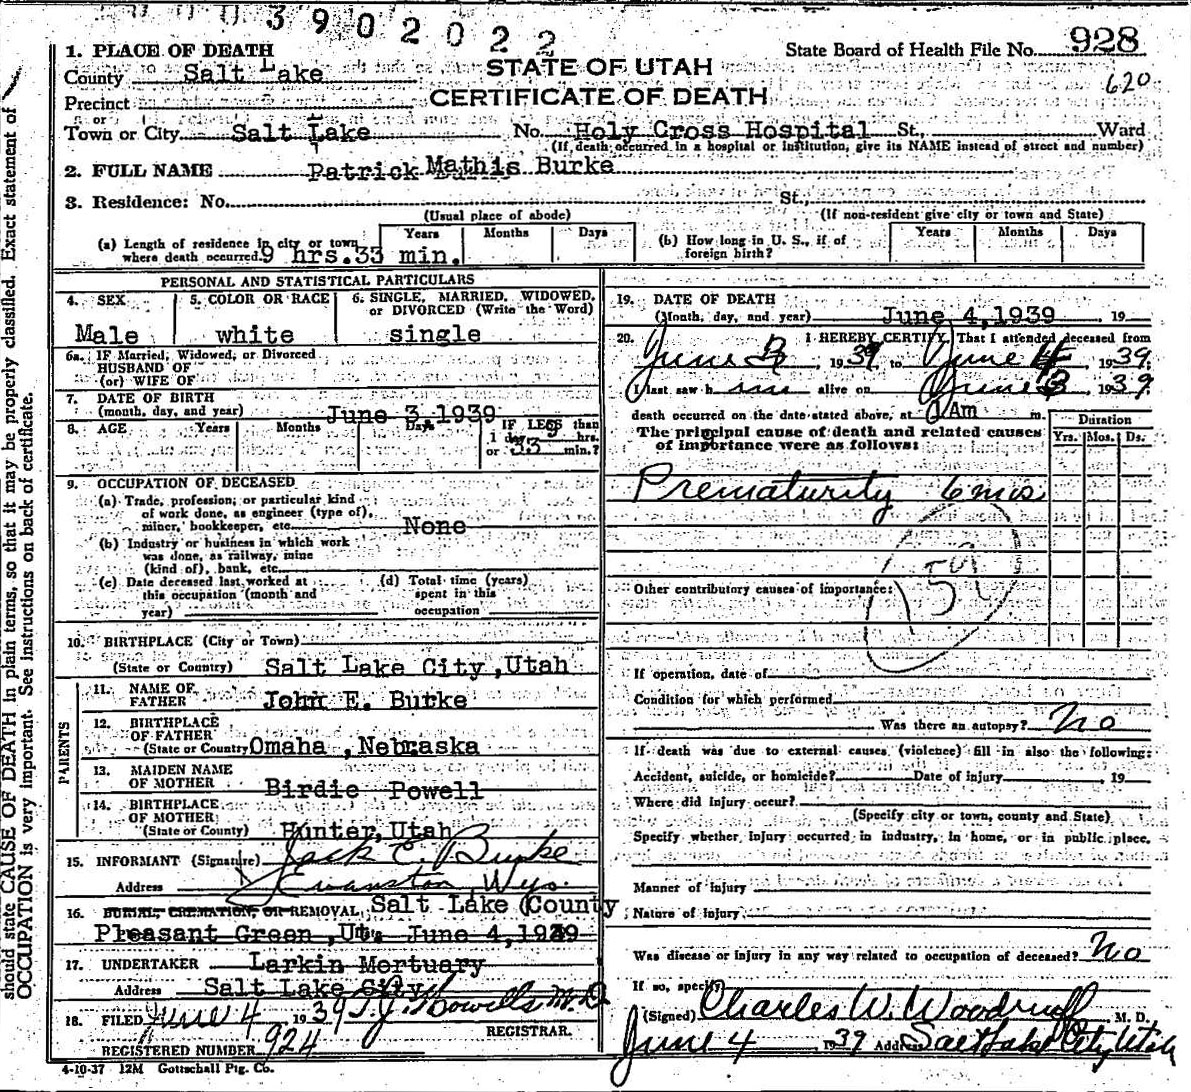 390202 2
1. PLACE OF DEATH
State Board of Health File No. 928
County Salt Lake
STATE OF UTAH
620
Precinct
CERTIFICATE OF DEATH
or
Town or City Salt Lake No. Holy Cross Hospital St., Ward
(If death occurred in a hospital or institution, give its NAME instead of street and number)
2. FULL NAME Patrick Mathis Burke
3. Residence: No. St.,
(Usual place of abode) (If non-resident give city or town and State)
(a) Length of residence in city or town where death occurred. 9 hrs.33 min.
Years Months Days
(b) How long in U. S., if of foreign birth?
Years Months Days
PERSONAL AND STATISTICAL PARTICULARS
4. SEX
Male
5. COLOR OR RACE
white
6. SINGLE, MARRIED, WIDOWED, or DIVORCED (Write the Word)
single
6a. IF Married, Widowed, or Divorced
HUSBAND OF
(or) WIFE OF
7. DATE OF BIRTH
(month, day, and year) June 3,1939
8. AGE Years Months Days
IF LESS than
1 day, 9 hrs.
or 33 min.?
9. OCCUPATION OF DECEASED
(a) Trade, profession, or particular kind
of work done, as engineer (type of),
miner, bookkeeper, etc. None
(b) Industry or business in which work
was done, as railway, mine
(kind of), bank, etc.
(c) Date deceased last worked at
this occupation (month and
year)
(d) Total time (years)
spent in this
occupation
10. BIRTHPLACE (City or Town)
(State or Country) Salt Lake City,Utah
PARENTS
11. NAME OF
FATHER John E. Burke
12. BIRTHPLACE
OF FATHER
(State or Country) Omaha ,Nebraska
13. MAIDEN NAME
OF MOTHER Birdie Powell
14. BIRTHPLACE
OF MOTHER
(State or County) Hunter,Utah
15. INFORMANT (Signature) Jack E. Burke
Address Evanston, Wyo.
16. BURIAL, CREMATION, OR REMOVAL Salt Lake County
Pleasant Green ,Ut. June 4,1939
17. UNDERTAKER Larkin Mortuary
Address Salt Lake City
18. FILED June 4 1939 T.J. Howells M.D.
REGISTRAR.
REGISTERED NUMBER 924
4-10-37 12M Gottschall Ptg. Co.
19. DATE OF DEATH
(Month, day, and year) June 4,1939 19
20. I HEREBY CERTIFY, That I attended deceased from
June 3, 1939, to June 4, 1939.
I last saw h im alive on June 3 1939.
death occurred on the date stated above, at 1 Am m.
The principal cause of death and related causes
of importance were as follows:
Duration
Yrs. Mos. Ds.
Prematurity 6 mos
159
Other contributory causes of importance:
If operation, date of
Condition for which performed
Was there an autopsy? No
If death was due to external causes (violence) fill in also the following:
Accident, suicide, or homicide? Date of injury 19
Where did injury occur?
(Specify city or town, county and State)
Specify whether injury occurred in industry, in home, or in public place.
Manner of injury
Nature of injury
Was disease or injury in any way related to occupation of deceased? No
If so, specify
(Signed) Charles W. Woodruff M. D.
June 4 1939 Address Salt Lake City Utah
should state CAUSE OF DEATH in plain terms, so that it may be properly classified. Exact statement of
OCCUPATION is very important. See instructions on back of certificate.